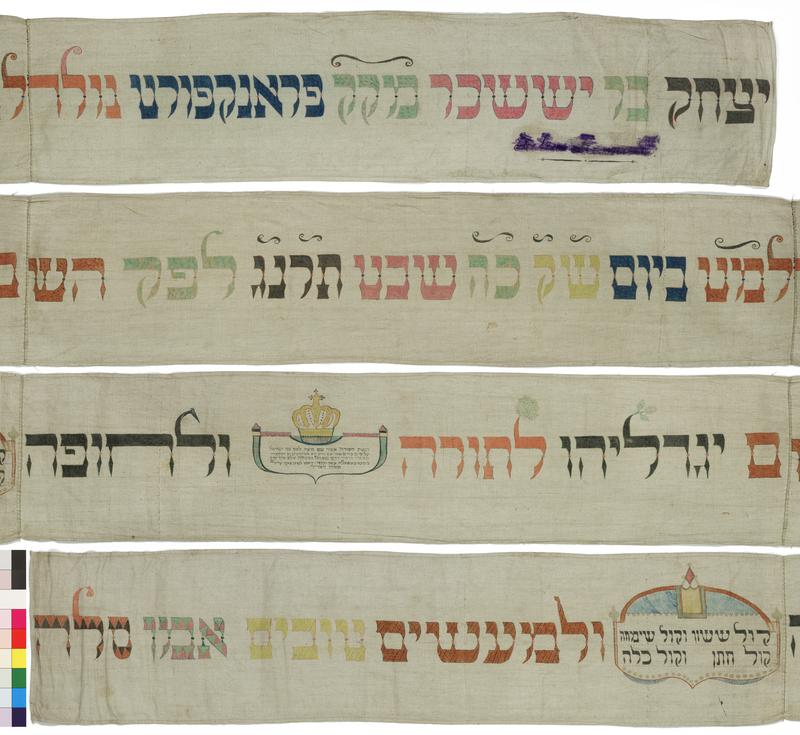 יצחק בר יששכר מקק פראנקפורט נולד ל
למזט ביום שק כה שבט תרנג לפק הש ם
ם יגדליהו לתורה ולחופה
קול ששון וקול שמחה
קול חתן וקול כלה
ולמעשים טובים אמן סלה